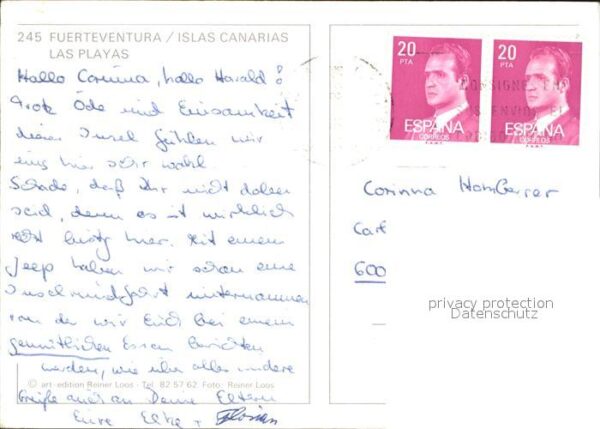 245 FUERTEVENTURA / ISLAS CANARIAS
LAS PLAYAS
Hallo Corinna, hallo Harald!
Trotz Öde und Einsamkeit
dieser Insel fühlen wir
uns hier sehr wohl.
Schade, daß Ihr nicht dabei
seid, denn es ist wirklich
echt lustig hier. Mit einem
Jeep haben wir schon eine
Inselrundfahrt unternommen
von der wir Euch bei einem
gemütlichen Essen berichten
werden, wie über alles andere
© art-edition Reiner Loos · Tel. 82 57 62 · Foto: Reiner Loos
Grüße auch an Deine Eltern
Eure Elke + Florian
20
PTA
ESPAÑA
CORREOS
20
PTA
ESPAÑA
CORREOS
CONSIGNE
Corinna
Carl
600
privacy protection
Datenschutz